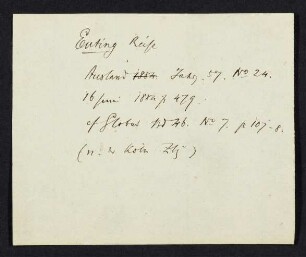 Euting Reise
Ausland 1884 Jahrg. 57. No 24.
16 Juni 1884 p 479.
cf Globus Bd 46. No 7. p 107-8.
(n. d Köln Ztg)